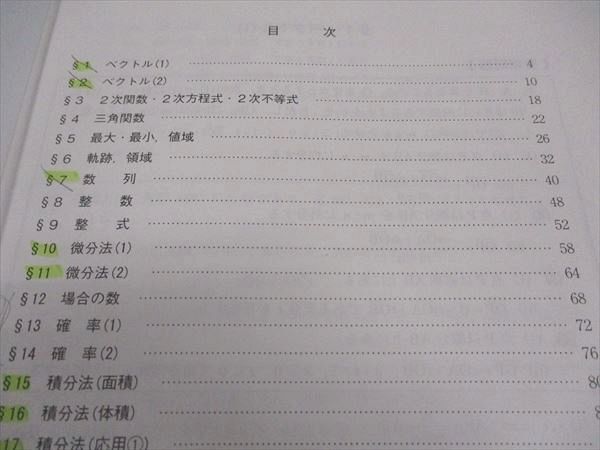 目 次
§1 ベクトル(1) 4
§2 ベクトル(2) 10
§3 2次関数・2次方程式・2次不等式 18
§4 三角関数 22
§5 最大・最小,値域 26
§6 軌跡,領域 32
§7 数 列 40
§8 整 数 48
§9 整 式 52
§10 微分法(1) 58
§11 微分法(2) 64
§12 場合の数 68
§13 確 率(1) 72
§14 確 率(2) 76
§15 積分法(面積) 80
§16 積分法(体積) 8
17 積分法(応用①)